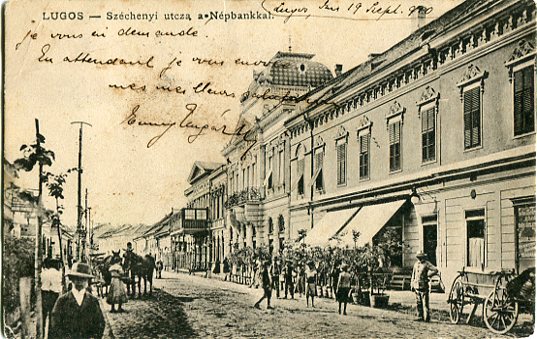 LUGOS — Széchenyi utcza a Népbankkal.
Lugos, 19 Sept. 900
je vous en demande.
En attendant je vous envoi
mes meilleurs
Emmy Ungár